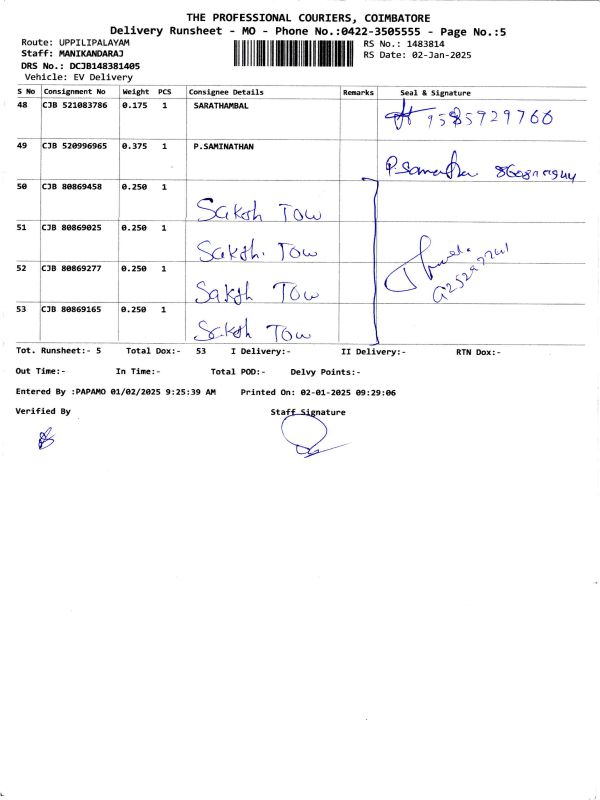 THE PROFESSIONAL COURIERS, COIMBATORE
Delivery Runsheet - MO - Phone No.:0422-3505555 - Page No.:5
Route: UPPILIPALAYAM RS No.: 1483814
Staff: MANIKANDARAJ RS Date: 02-Jan-2025
DRS No.: DCJB148381405
Vehicle: EV Delivery
S No Consignment No Weight PCS Consignee Details Remarks Seal & Signature
48 CJB 521083786 0.175 1 SARATHAMBAL 9585929766
49 CJB 520996965 0.375 1 P.SAMINATHAN
50 CJB 80869458 0.250 1 Saksh Tow
51 CJB 80869025 0.250 1 Saksh. Tow
52 CJB 80869277 0.250 1 Saksh Tow
53 CJB 80869165 0.250 1 Saksh Tow
Tot. Runsheet:- 5 Total Dox:- 53 I Delivery:- II Delivery:- RTN Dox:-
Out Time:- In Time:- Total POD:- Delvy Points:-
Entered By :PAPAMO 01/02/2025 9:25:39 AM Printed On: 02-01-2025 09:29:06
Verified By Staff Signature